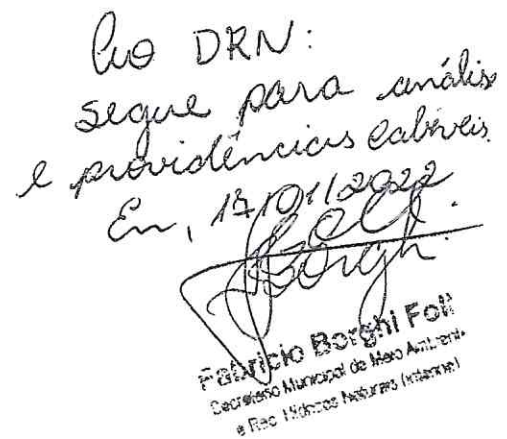 Ao DRN:
segue para análise
e providências cabíveis.
Em, 17/01/2022.
Fabricio Borghi Folli
Secretário Municipal de Meio Ambiente
e Rec. Hídricos Naturais (Interino)